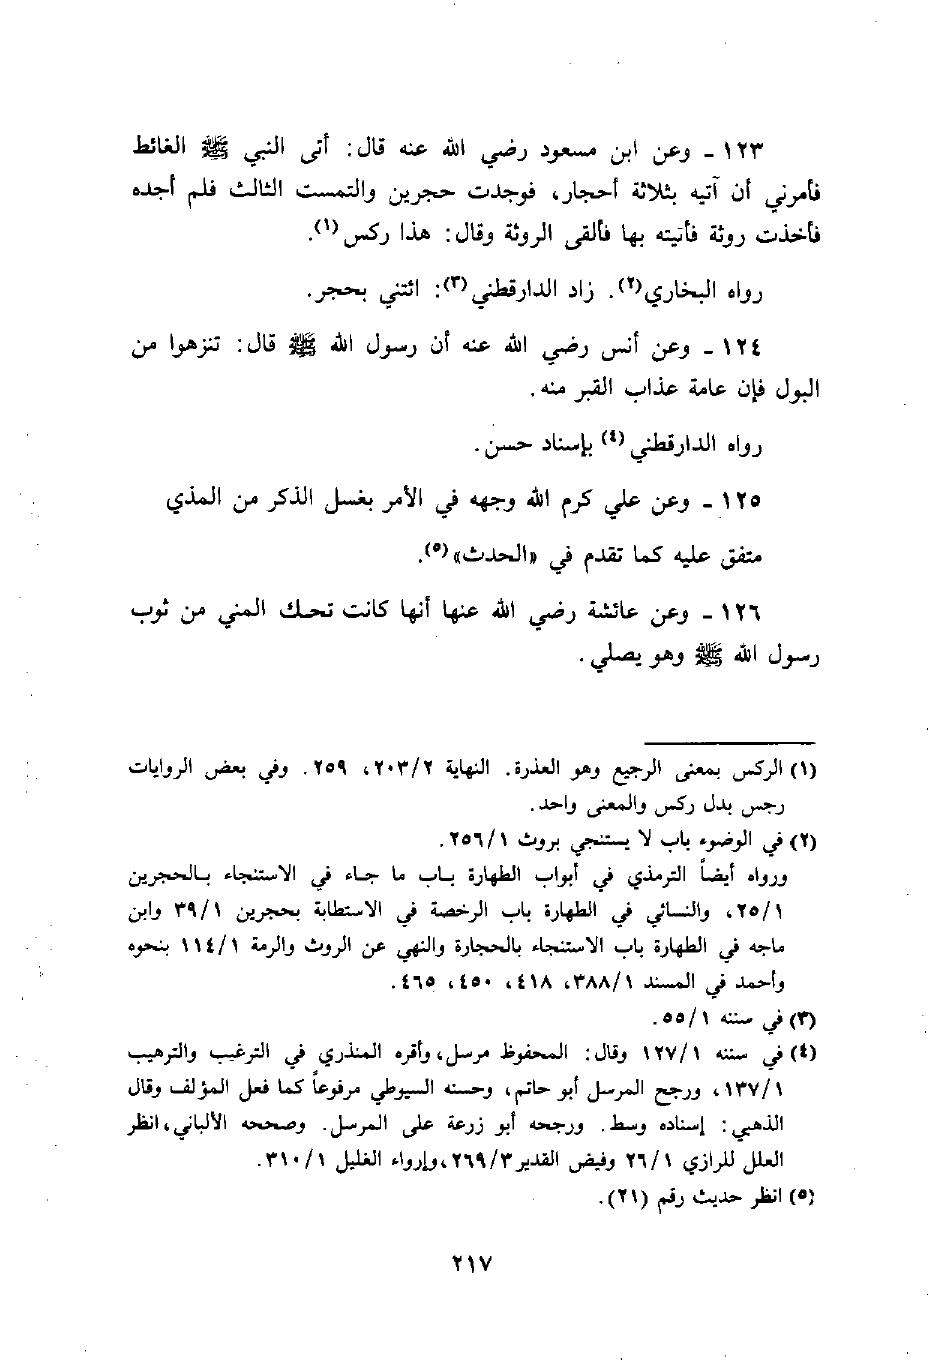 ١٢٣ ـ وعن ابن مسعود رضي الله عنه قال: أتى النبي ﷺ الغائط
فأمرني أن آتيه بثلاثة أحجار، فوجدت حجرين والتمست الثالث فلم أجده
فأخذت روثة فأتيته بها فألقى الروثة وقال: هذا ركس(١).
رواه البخاري(٢). زاد الدارقطني(٣): ائتني بحجر.
١٢٤ ـ وعن أنس رضي الله عنه أن رسول الله ﷺ قال: تنزهوا من
البول فإن عامة عذاب القبر منه.
رواه الدارقطني(٤) بإسناد حسن.
١٢٥ ـ وعن علي كرم الله وجهه في الأمر بغسل الذكر من المذي
متفق عليه كما تقدم في «الحدث»(٥).
١٢٦ ـ وعن عائشة رضي الله عنها أنها كانت تحك المني من ثوب
رسول الله ﷺ وهو يصلي.
(١) الركس بمعنى الرجيع وهو العذرة. النهاية ٢٠٣/٢، ٢٥٩. وفي بعض الروايات
رجس بدل ركس والمعنى واحد.
(٢) في الوضوء باب لا يستنجي بروث ٢٥٦/١.
ورواه أيضاً الترمذي في أبواب الطهارة باب ما جاء في الاستنجاء بالحجرين
٢٥/١، والنسائي في الطهارة باب الرخصة في الاستطابة بحجرين ٣٩/١ وابن
ماجه في الطهارة باب الاستنجاء بالحجارة والنهي عن الروث والرمة ١١٤/١ بنحوه
وأحمد في المسند ٣٨٨/١، ٤١٨، ٤٥٠، ٤٦٥.
(٣) في سننه ٥٥/١.
(٤) في سننه ١٢٧/١ وقال: المحفوظ مرسل، وأقره المنذري في الترغيب والترهيب
١٣٧/١، ورجح المرسل أبو حاتم، وحسنه السيوطي مرفوعاً كما فعل المؤلف وقال
الذهبي: إسناده وسط. ورجحه أبو زرعة على المرسل. وصححه الألباني، انظر
العلل للرازي ٢٦/١ وفيض القدير ٢٦٩/٣، وإرواء الغليل ٣١٠/١.
(٥) انظر حديث رقم (٢١).
٢١٧